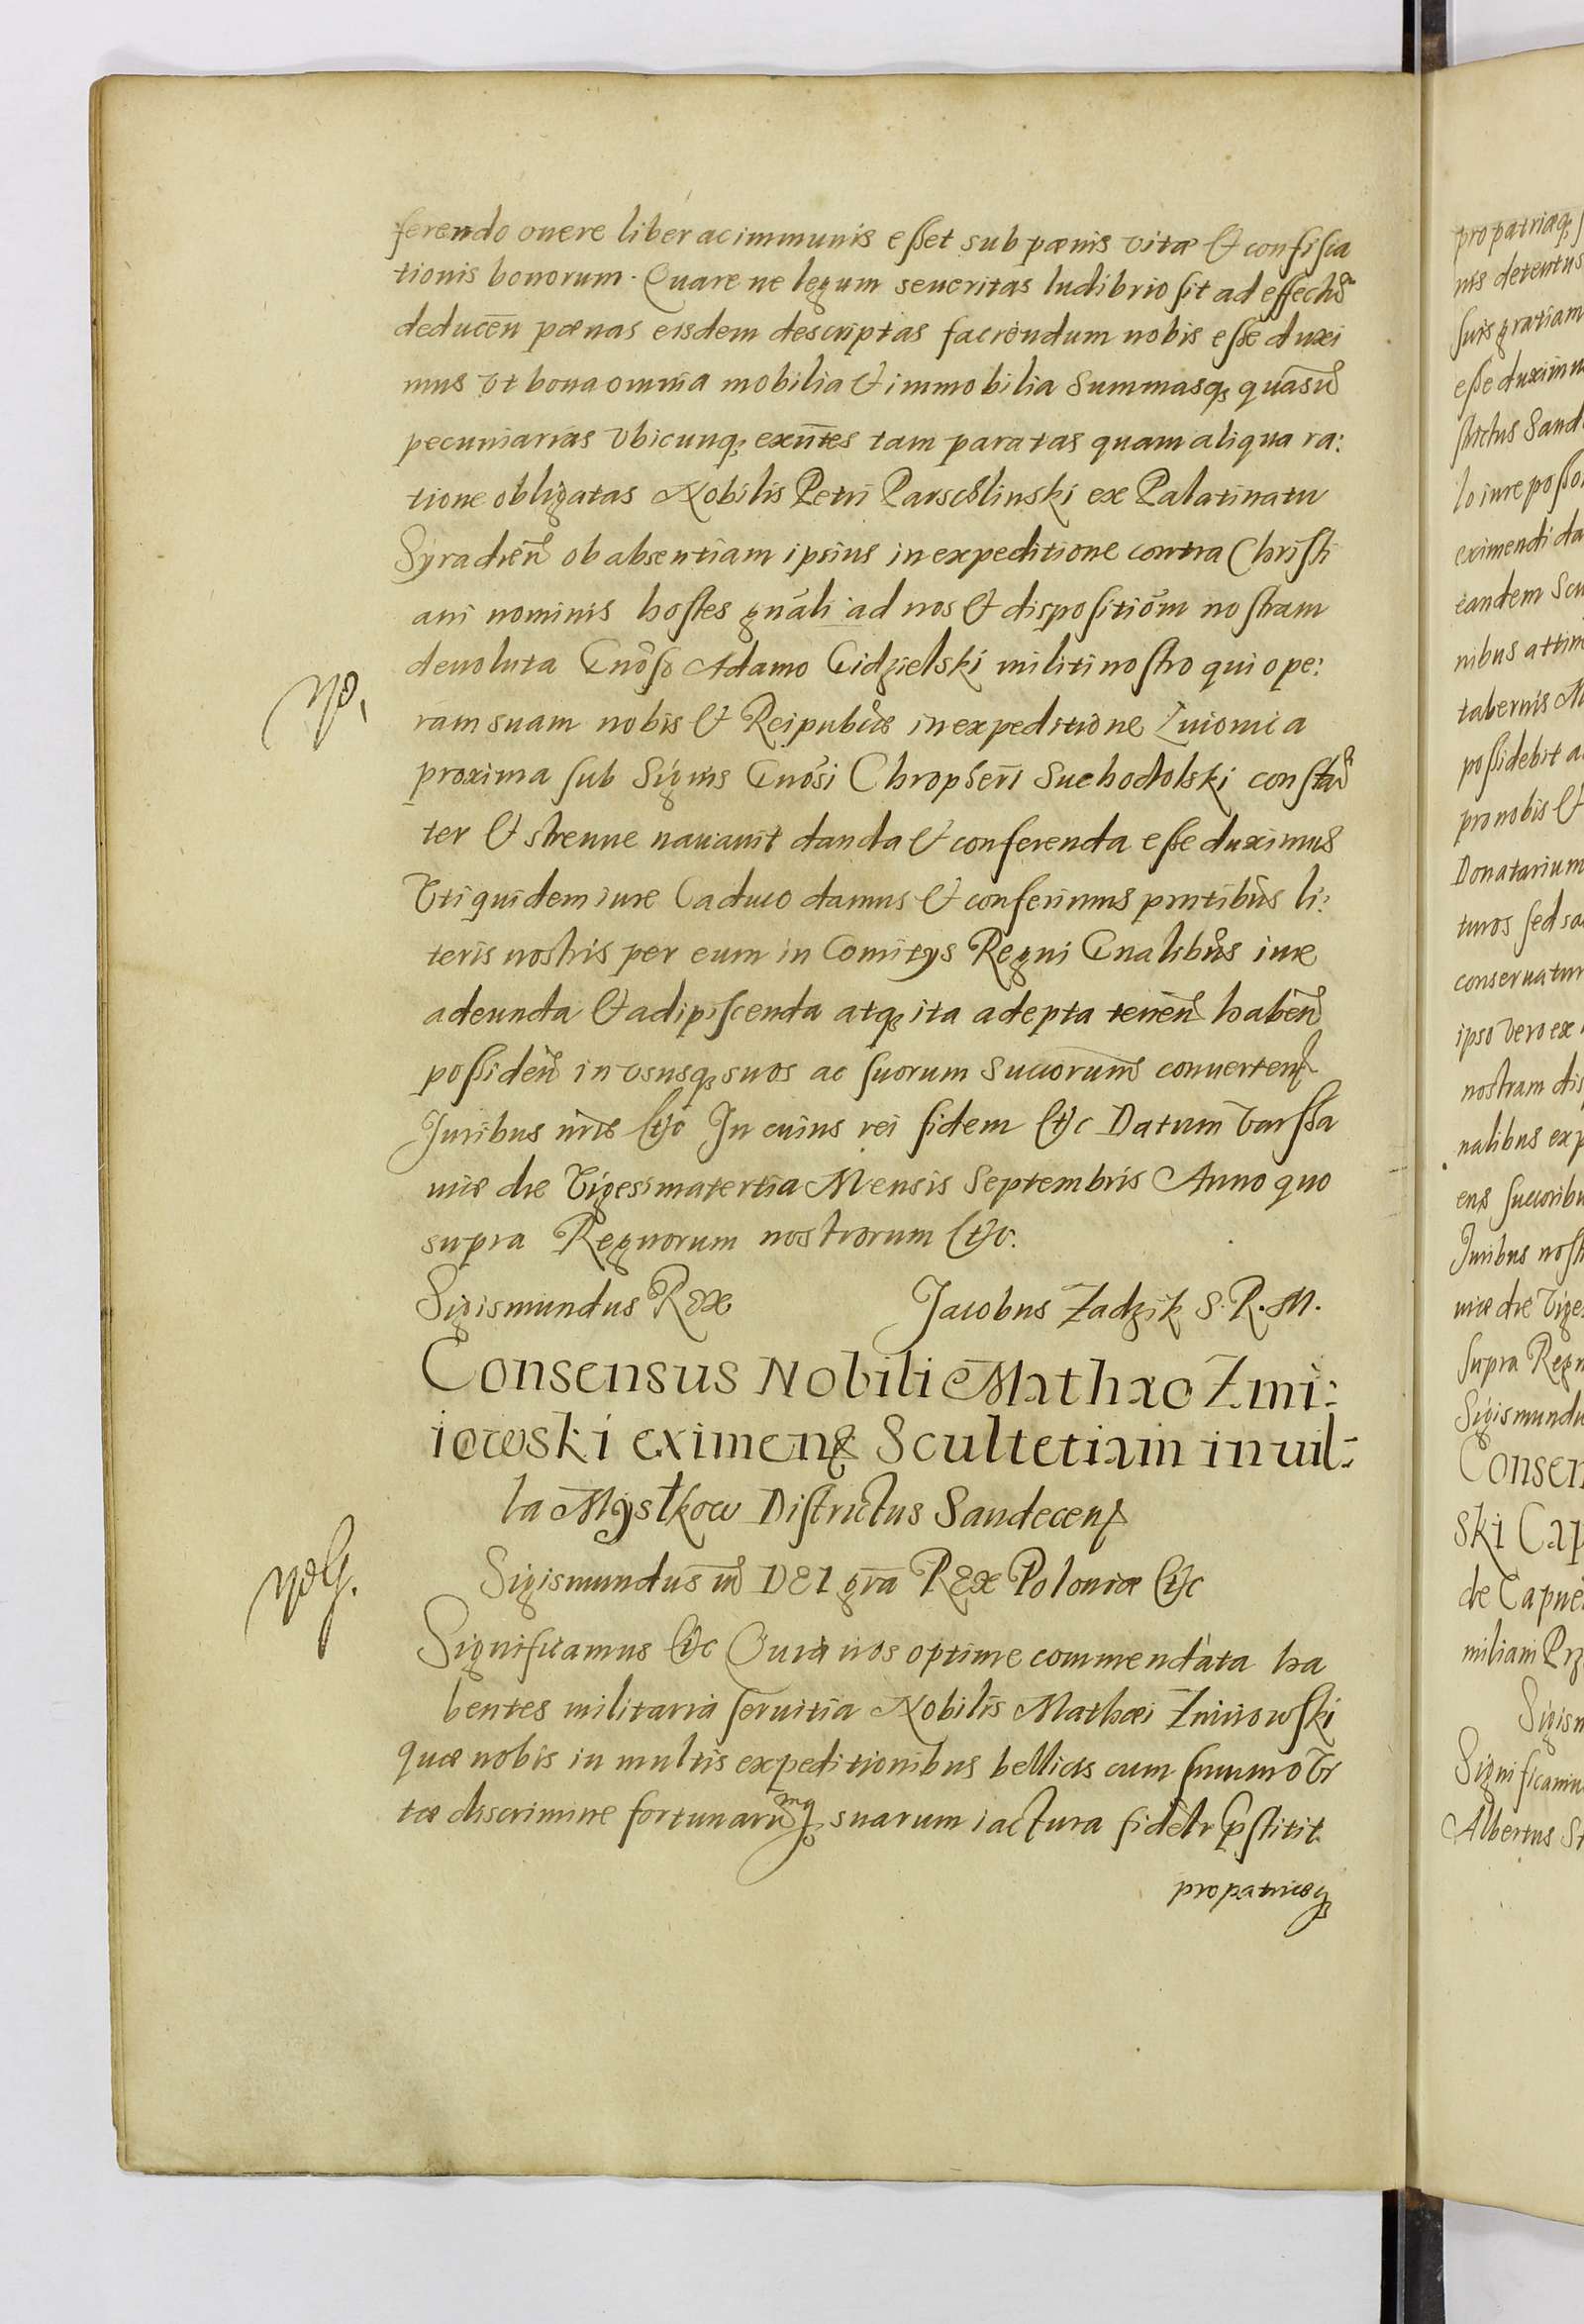 ferendo onere liber ac immunis esset sub pænis vitæ & confisca
tionis bonorum. Quare ne legum seueritas ludibrio sit ad effectũ
deducen̄ pænas eisdem descriptas faciendum nobis esse duxi
mus vt bona omnia mobilia & immobilia Summasq; quasũ
pecuniarias vbicunq; exn̄tes tam paratas quam aliqua ra:
tione obligatas Nobilis Petri Parschlinski ex Palatinatu
Syradien̄ ob absentiam ipsius in expeditione contra Christi
ani nominis hostes gn̄ali ad nos & dispositiōm nostram
deuoluta Gn̄oso Adamo Gidzielski militi nostro qui ope:
ram suam nobis & Reipublicæ in expeditione Liuonica
proxima sub Signis Gn̄osi Chrophori Suchodolski constan̄
ter & strenue nauauit danda & conferenda esse duximus
Vti quidem iure Caduco damus & conferimus pn̄tibus li:
teris nostris per eum in Comitys Regni Gn̄alibus iure
adeunda & adipiscenda atq; ita adepta tenen̄ haben̄
possiden̄ in vsusq; suos ac suorum Succorum̄ conuerten
Juribus nr̄is &c In cuius rei fidem &c Datum Varssa
uiæ die Vigesima tertia Mensis Septembris Anno quo
supra Regnorum nostrorum &c.
Sigismundus Rex Jacobus Zadzik S. R. M.
Consensus Nobili Mathæo Zmi:
iowski eximen Scultetiam in uil:
la Mystkow Districtus Sandecen
Sigismundus III DEI gr̄a REX Poloniæ &c
Significamus &c Quia nos optime commendata ha
bentes militaria seruitia Nobilis Mathæi Zmiiowski
quæ nobis in multis expeditionibus bellicis cum summo vi
tæ discrimine fortunarumq; suarum iactura fidelr pstitit
pro patriæq;
pro patriæq;
nis detentus
suis gratiam
esse duximu
strictus Sand
lo iure posso
eximendi da
eandem Scu
nibus attin
tabernis M
possidebit a
pro nobis &
Donatarium
turos sed sa
conseruatur
ipso vero ex
nostram dis
nalibus exp
ens succoribu
Juribus nost
uiæ die Vige
supra Regn
Sigismundu
Consen
ski Cap
de Capue
miliam Prz
Sigism
Significamu
Albertus St